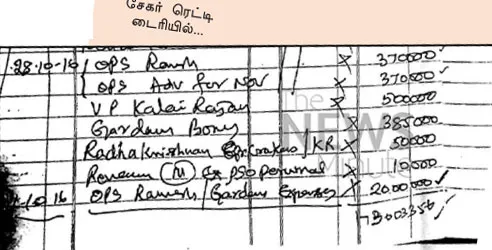 சேகர் ரெட்டி
டைரியில்...
28.10.16 OPS Ramesh X 370000
OPS Adv for Nov X 370000
V P Kalai Rajan X 500000
Gardens Bony X 385000
Radhakrishnan for crackers / KR X 50000
(N) Ex PSO personal X 10,000
10.16 OPS Ramesh / Gardens Expenses X 2000000
The
NEWS
Minute